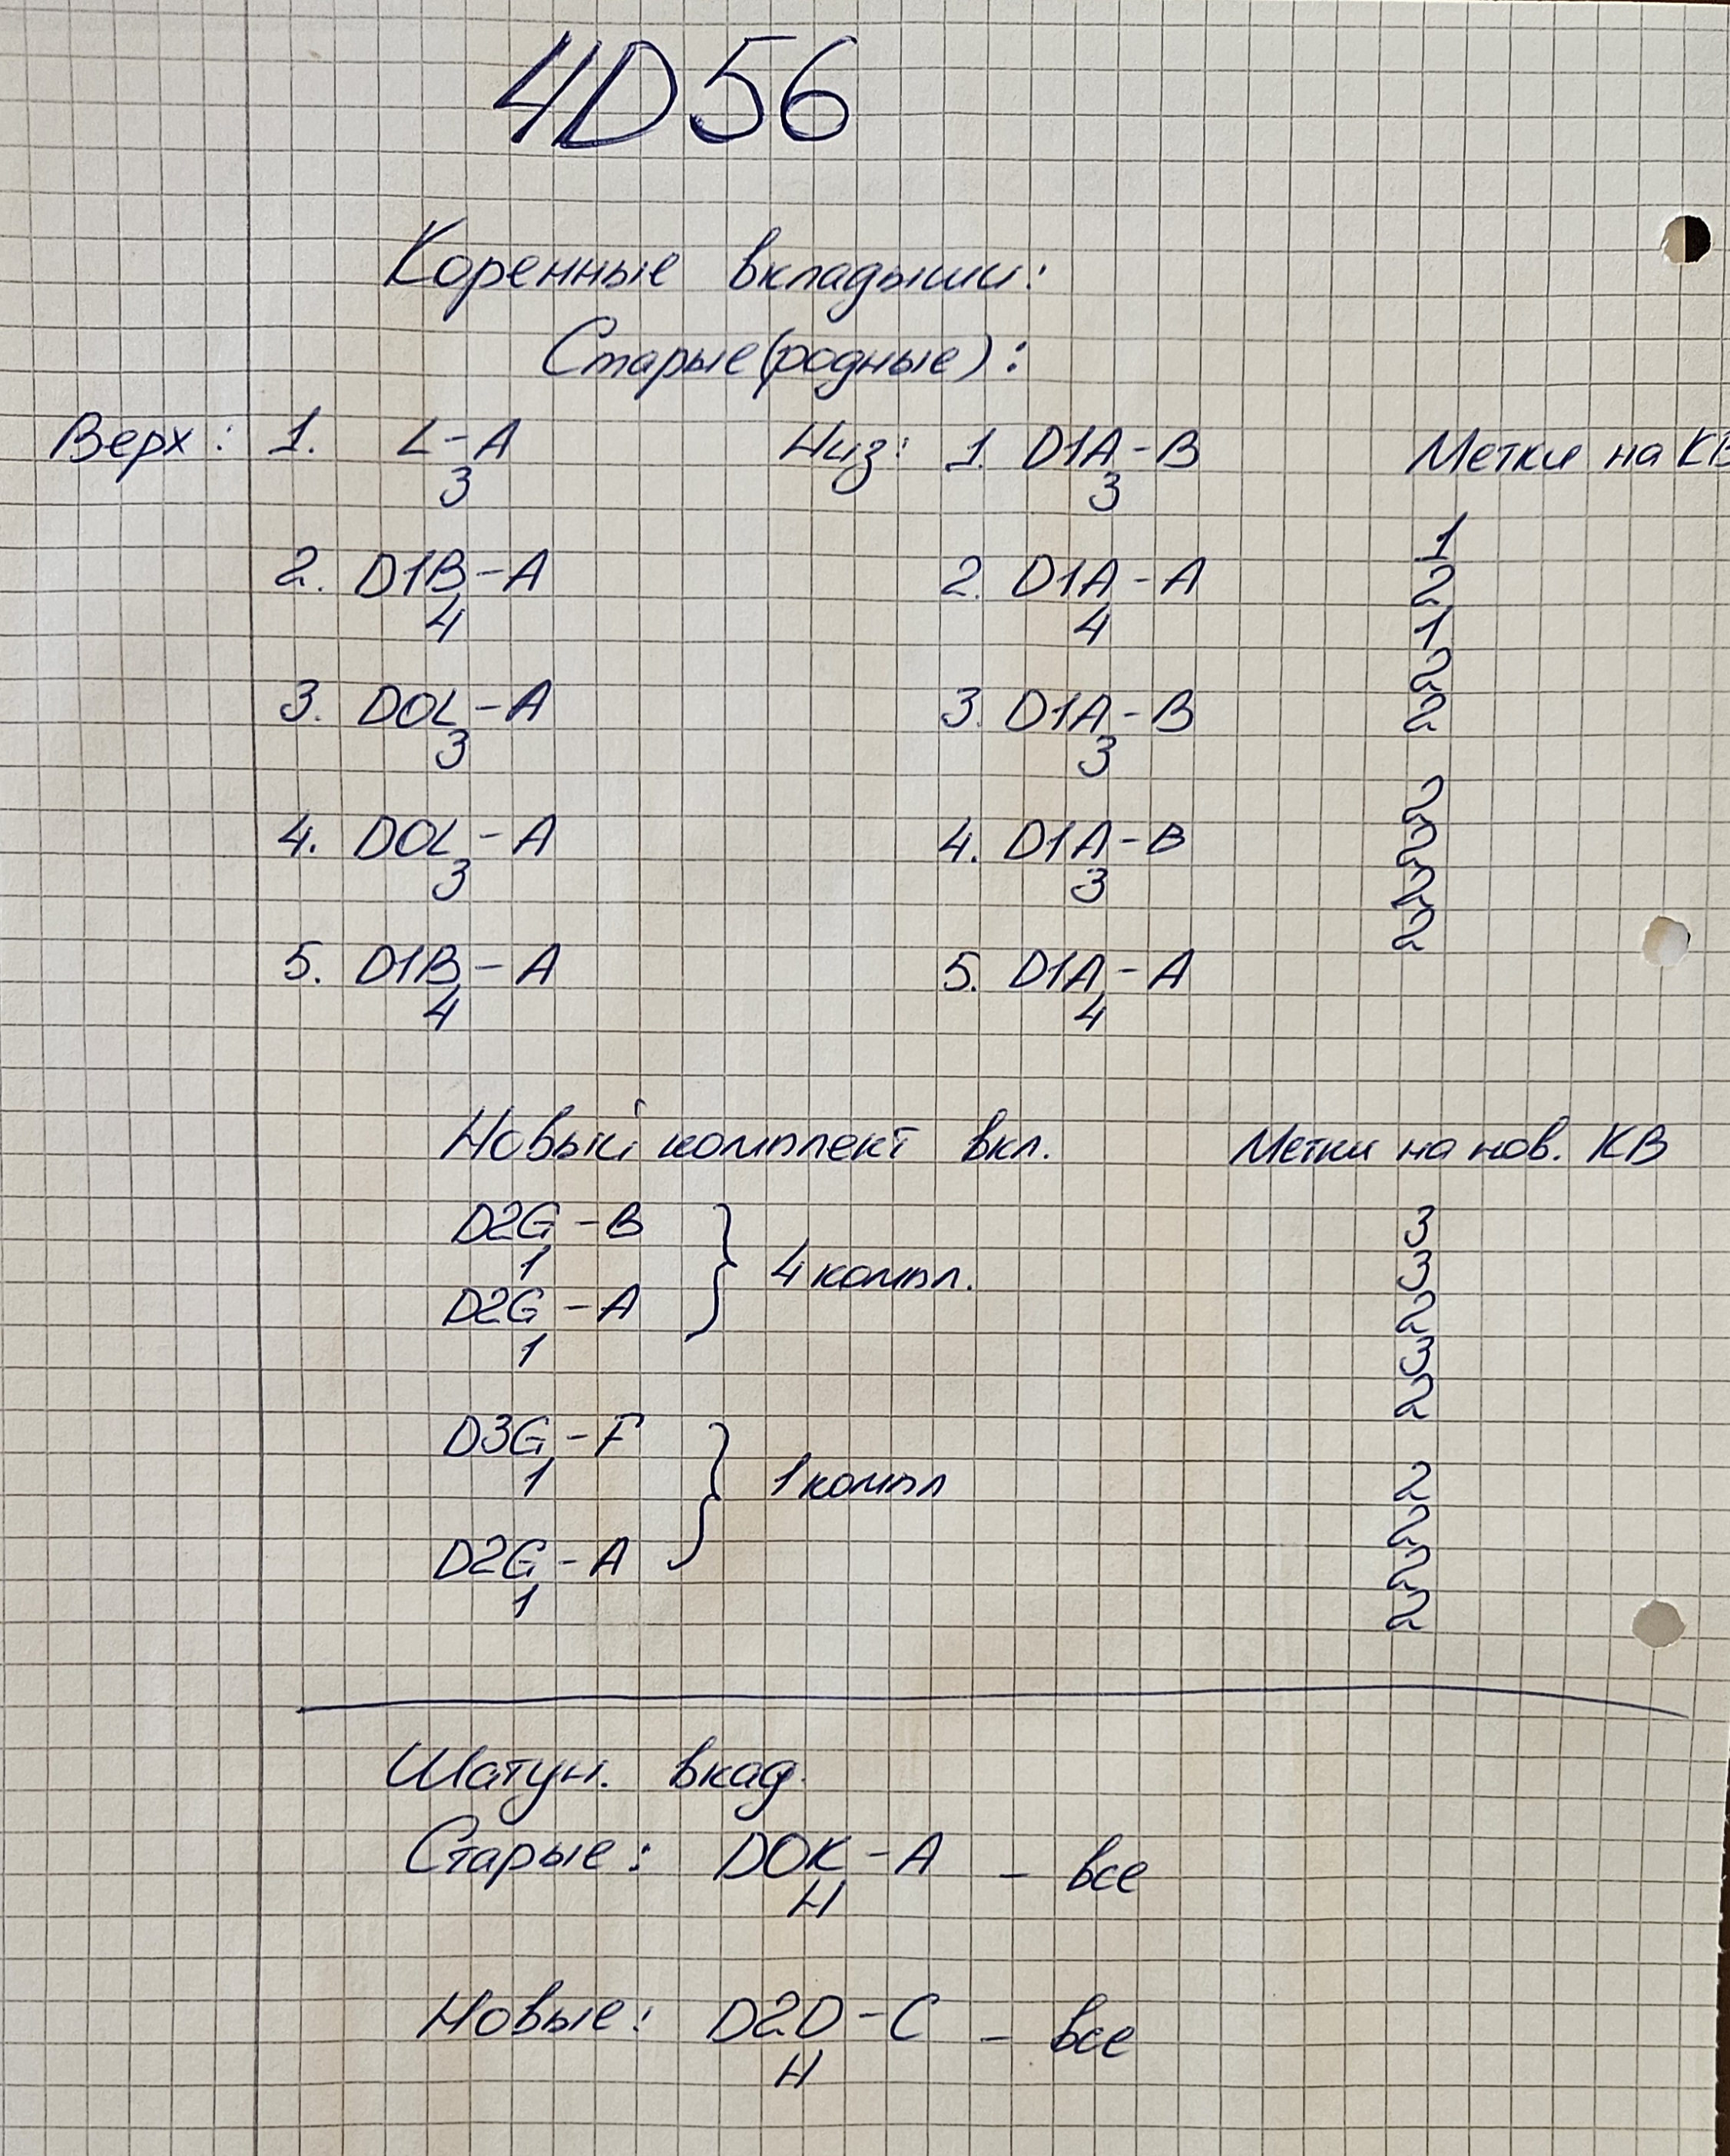 4D56
Коренные вкладыши:
Старые (родные):
Верх: 1. L-A Низ: 1. D1A-B Метки на КВ
3 3
1
2. D1B-A 2. D1A-A 2
4 4 1
2
3. DOL-A 3. D1A-B 2
3 3
2
4. DOL-A 4. D1A-B 2
3 3 2
2
5. D1B-A 5. D1A-A
4 4
Новый комплект вкл. Метки на нов. КВ
D2G-B 3
1 } 4 компл. 3
D2G-A 2
1 3
2
D3G-F
1 } 1 компл 2
2
D2G-A 2
1 2
Шатун. вкад.
Старые: DOK-A - все
H
Новые: D2D-C - все
H